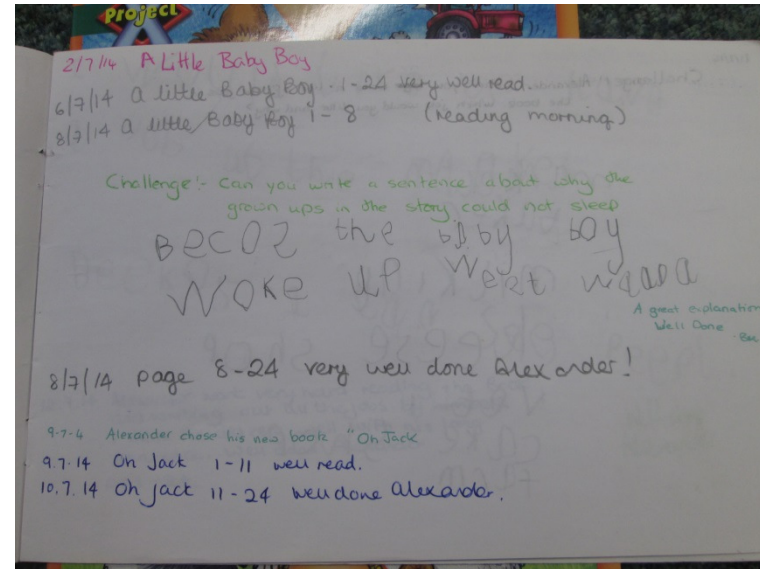 Project
X
2/7/14 A Little Baby Boy
6/7/14 a little Baby Boy. 1-24 very well read.
8/7/14 a little Baby Boy 1-8 (reading morning)
Challenge!- Can you write a sentence about why the
grown ups in the story could not sleep
Becos the biby boy
Woke up Weet waaa
A great explanation
Well Done
8/7/14 page 8-24 very well done Alexander!
9-7-4 Alexander chose his new book "Oh Jack
9.7.14 Oh Jack 1-11 well read.
10.7.14 Oh jack 11-24 well done Alexander.